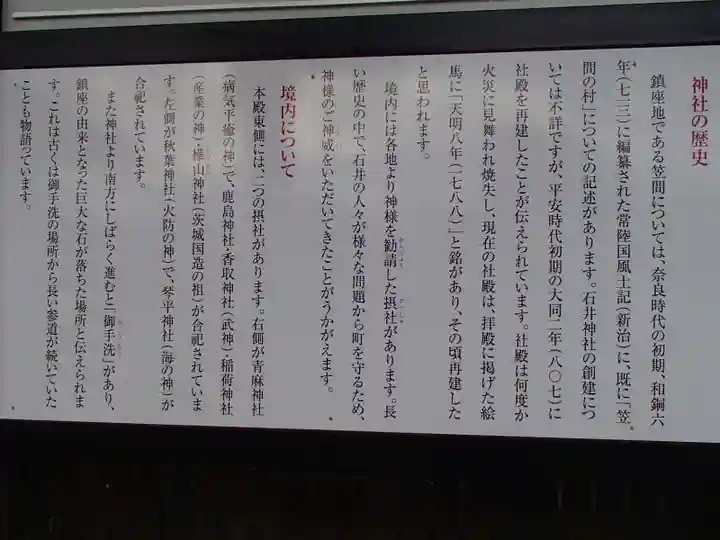 神社の歴史
鎮座地である笠間については、奈良時代の初期、和銅六
年(七一三)に編纂された常陸国風土記(新治)に、既に「笠
間の村」についての記述があります。石井神社の創建につ
いては不詳ですが、平安時代初期の大同二年(八〇七)に
社殿を再建したことが伝えられています。社殿は何度か
火災に見舞われ焼失し、現在の社殿は、拝殿に掲げた絵
馬に「天明八年(一七八八)」と銘があり、その頃再建した
と思われます。
境内には各地より神様を勧請した摂社があります。長
い歴史の中で、石井の人々が様々な問題から町を守るため、
神様のご神威をいただいてきたことがうかがえます。
境内について
本殿東側には、二つの摂社があります。右側が青麻神社
(病気平癒の神)で、鹿島神社・香取神社(武神)・稲荷神社
(産業の神)・樺山神社(茨城国造の祖)が合祀されていま
す。左側が秋葉神社(火防の神)で、琴平神社(海の神)が
合祀されています。
また神社より南方にしばらく進むと「御手洗」があり、
鎮座の由来となった巨大な石が落ちた場所と伝えられま
す。これは古くは御手洗の場所から長い参道が続いていた
ことも物語っています。